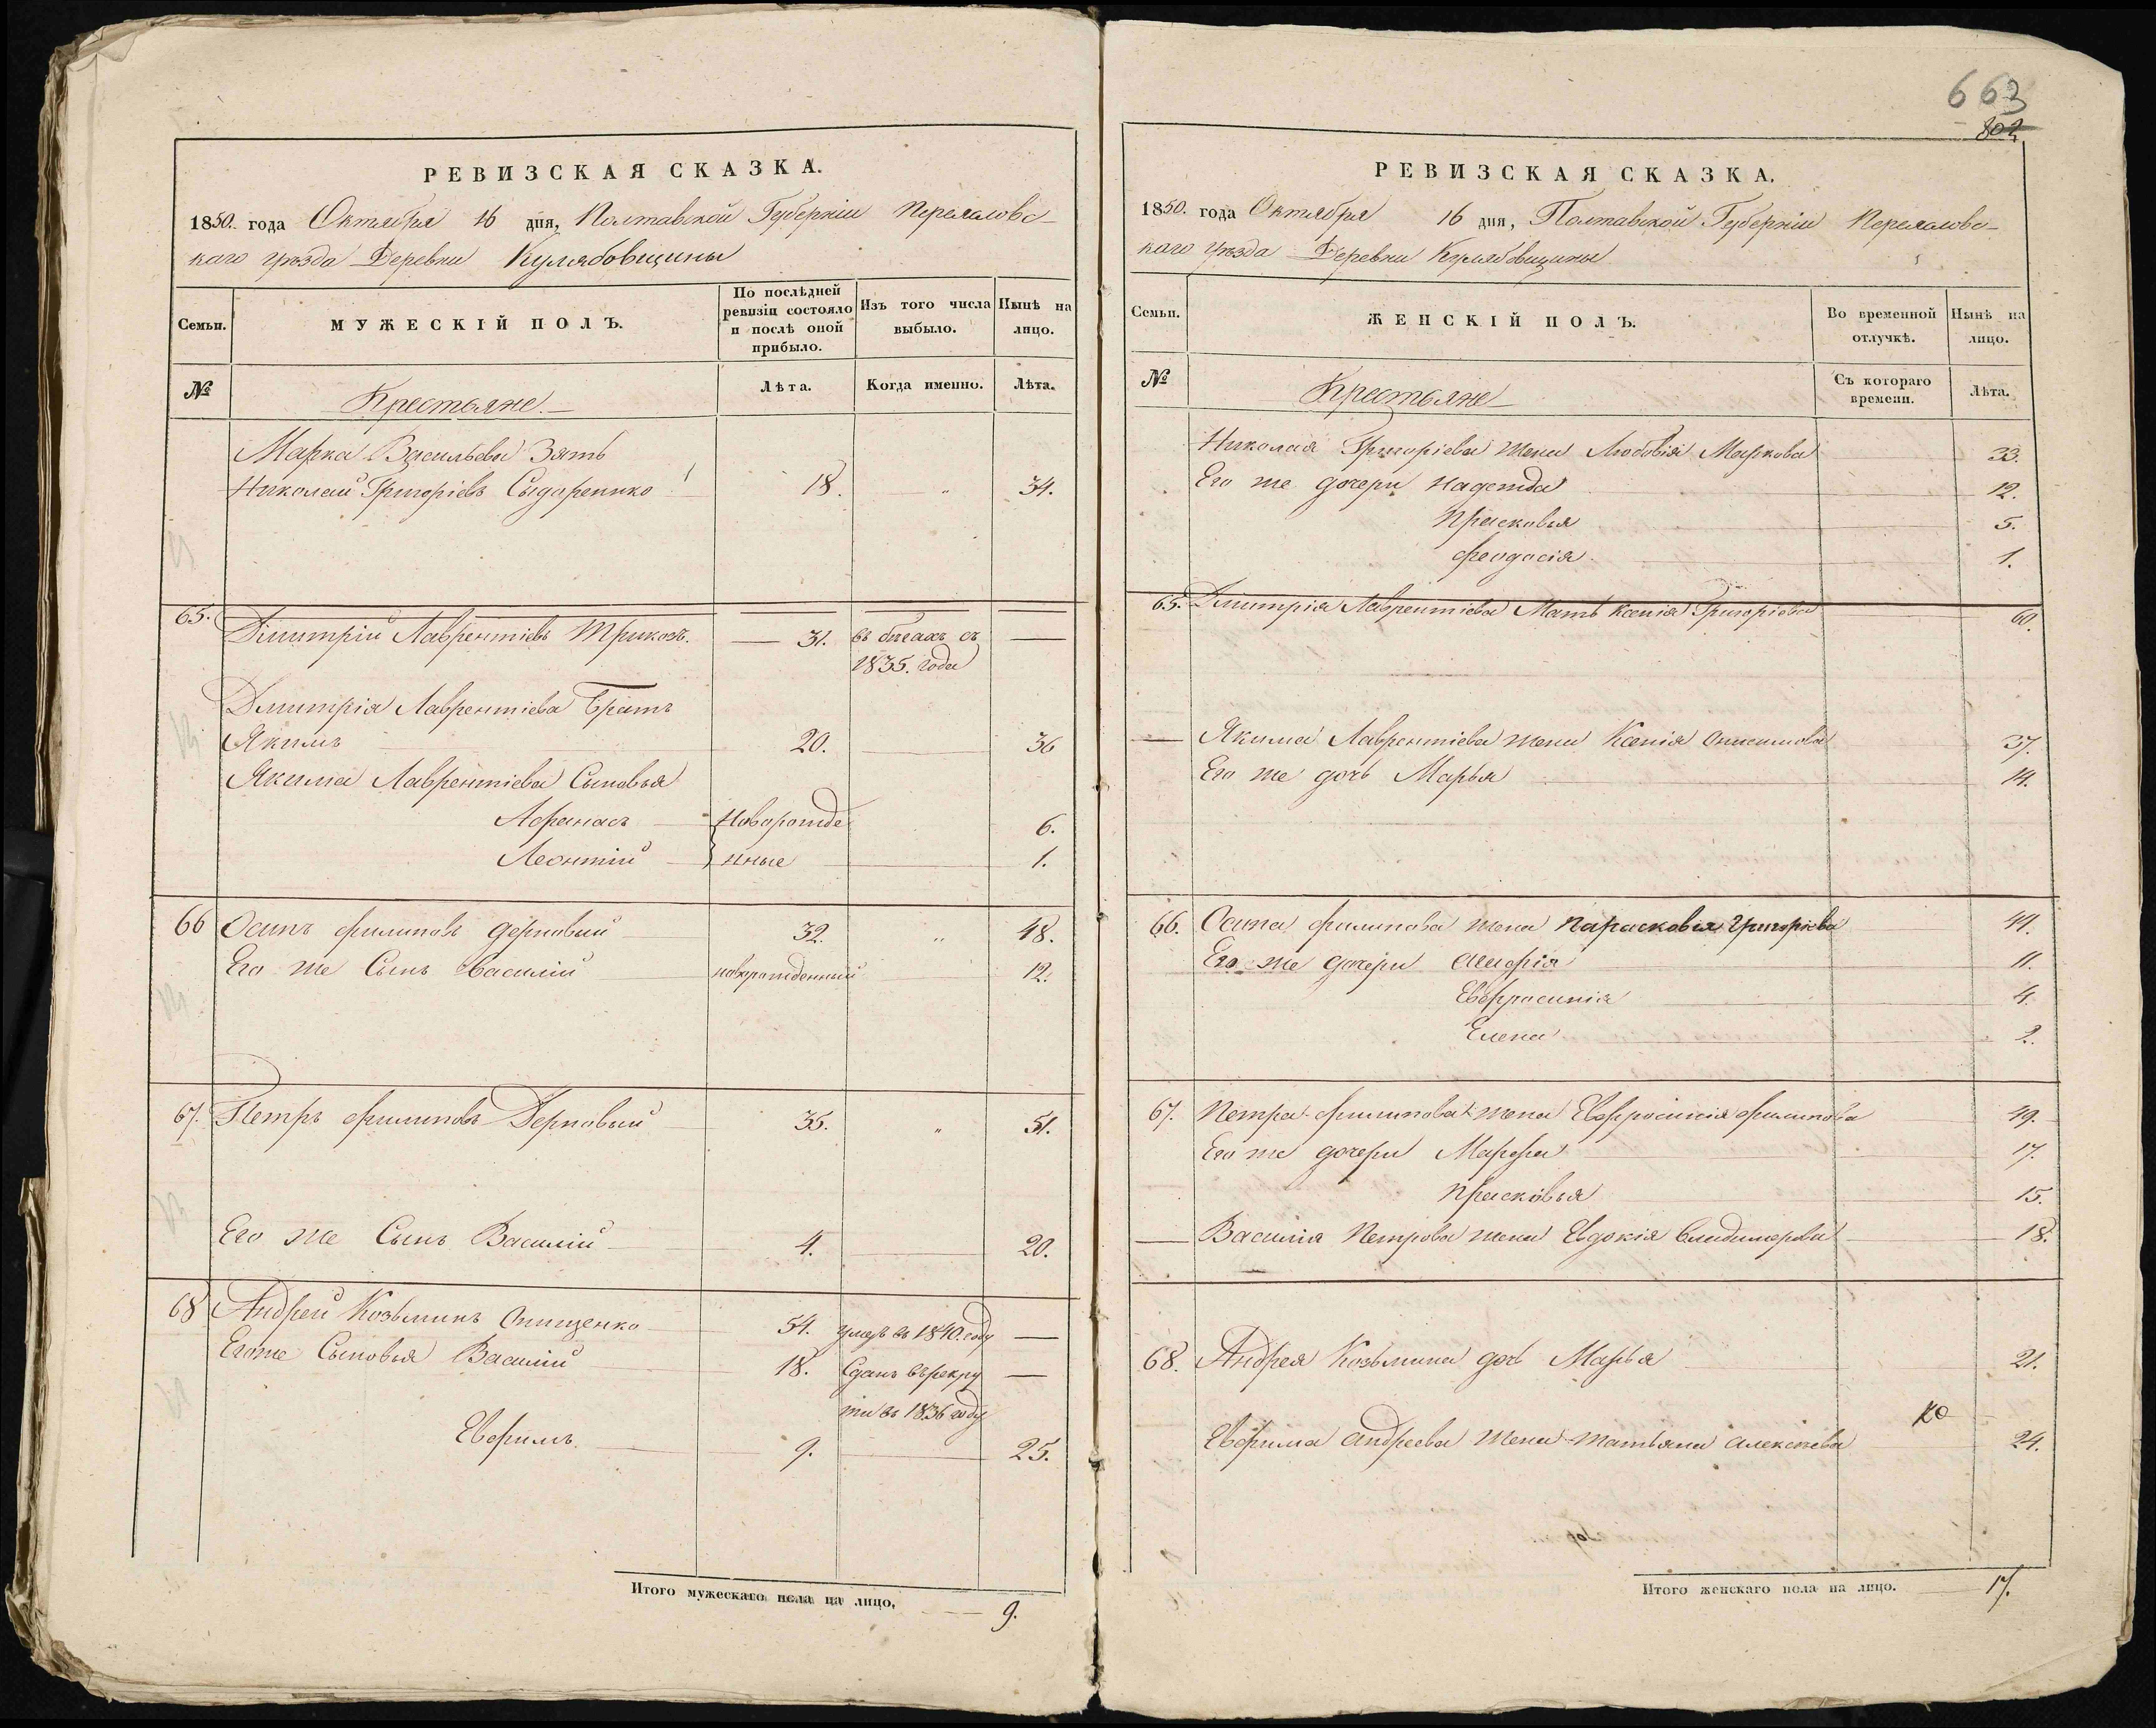 РЕВИЗСКАЯ СКАЗКА.
1850. года Октября 16 дня, Полтавской Губерніи Переяловс-
каго уезда Деревни Кулябовщины
Семьи.
МУЖЕСКІЙ ПОЛЪ.
По послѣдней ревизіи состояло и послѣ оной прибыло.
Изъ того числа выбыло.
Нынѣ на лицо.
№
Крестьяне.
Лѣта.
Когда именно.
Лѣта.
Марка Васильева Зять
Николай Григоріевъ Сыдоренико 18. „ 34.
65. Дмитрій Лаврентіевъ Трикозъ. 31. въ бѣгахъ съ
1835. года
Дмитрія Лаврентіева Братъ
Якимъ 20. 36
Якима Лаврентіева Сыновья
Афанасъ Новорожде 6.
Леонтій нные 1.
66 Осипъ Филиповъ Дерновый 32. „ 48.
Его же Сынъ Василій новорожденный 12.
67. Петръ Филиповъ Дерновый 35. „ 51.
Его же Сынъ Василій 4. 20.
68 Андрей Козьминъ Онищенко 54. умеръ въ 1840. году
Его же Сыновья Василій 18. Сданъ въ рекру
ты въ 1836 году
Евфимъ 9. 25.
Итого мужескаго пола на лицо, 9.
663
802
РЕВИЗСКАЯ СКАЗКА.
1850. года Октября 16 дня, Полтавской Губерніи Переяловс-
каго уезда Деревни Кулябовщины
Семьи.
ЖЕНСКІЙ ПОЛЪ.
Во временной отлучкѣ.
Нынѣ на лицо.
№
Крестьяне
Съ котораго времени.
Лѣта.
Николая Григоріева жена Любовія Маркова 33.
Его же дочери Надежда 12.
Прасковья 5.
Феодосія 1.
65. Дмитрія Лаврентіева Мать Ксенія Григоріева 60.
Якима Лаврентіева жена Ксенія Онисимова 37.
Его же дочь Марья 14.
66. Осипа Филипова жена Парасковія Григоріева
Его же дочери 11.
Евфросинія 4.
Елена 2.
67. Петра Филипова жена Евфросинія Филипова 49.
Его же дочери Марфа 17.
Прасковья 15.
Василія Петрова жена Евдокія Владимерова 18.
68. Андрея Козьмина дочь Марья 21.
Евфима Андреева жена Татьяна Алексѣева 24.
Итого женскаго пола на лицо. 17.